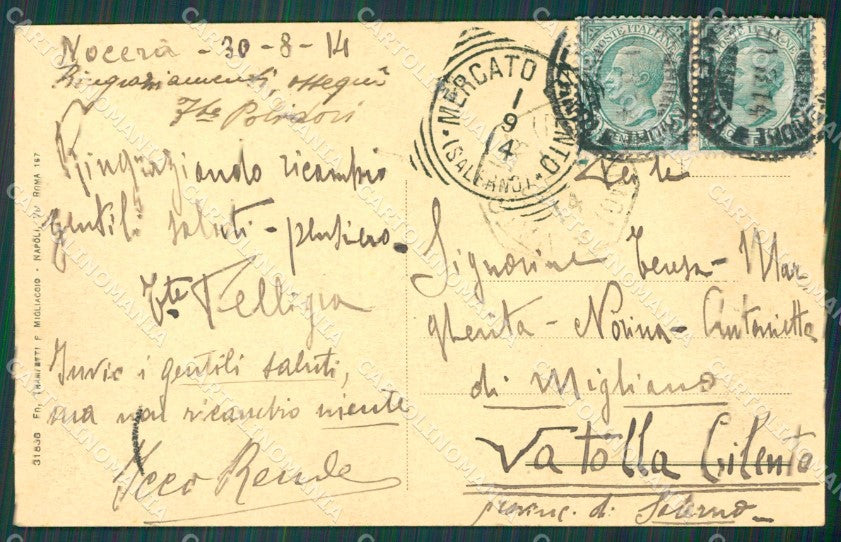 Nocera - 30-8-14
Ringraziamenti, ossequi
Tte Polidori
Ringraziando ricambio
gentili saluti - pensiero.
Tte Felligra
Invio i gentili saluti,
ma non ricambio niente
Rende
31838 Ed. Trampetti e Migliaccio - Napoli, Via Roma 197
MERCATO CILENTO
1 9 14
(SALERNO)
POSTE ITALIANE
POSTE ITALIANE
Gent.le
Signorine Teresa - Mar
gherita - Norina - Antonietta
di Migliano
Vatolla Cilento
provinc. di Salerno
CARTOLINOMANIA